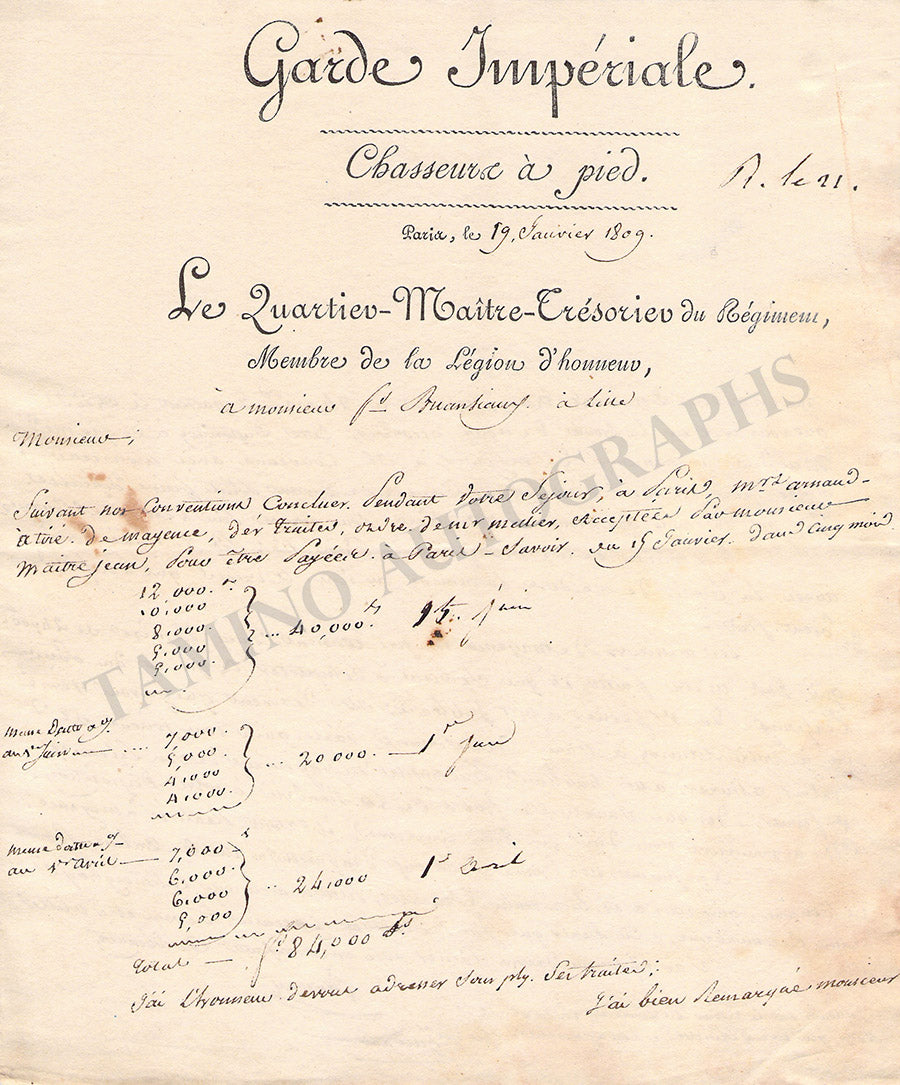 Garde Impériale.
Chasseurs à pied.
R. le 21.
Paris, le 19, Janvier 1809.
Le Quartier-Maître-Trésorier du Régiment,
Membre de la Légion d'honneur,
à monsieur à Lille
Monsieur,
Suivant nos Conventions Conclues Pendant Votre Séjour, à Paris, mrs arnaud-
à tiré de mayence, des traites, ordre de mr acceptées Par monsieur
Maitre jean, Pour être Payées à Paris - Savoir. du 15 Janvier. cinq mois
12,000. fs
10,000
8,000. ... 40,000. fs 15. juin
5,000
5,000.
Meme Datte
au 1er Juin ... 7,000.
5,000. ... 20,000. 1er juin
4,000
4,000.
Meme datte
au 1er avril 7,000
6,000. ... 24,000 1er avril
6,000
5,000
Total fs 84,000
J'ai L'honneur de vous adresser Sous ply. Ses traites;
J'ai bien Remarqué monsieur
TAMINO AUTOGRAPHS